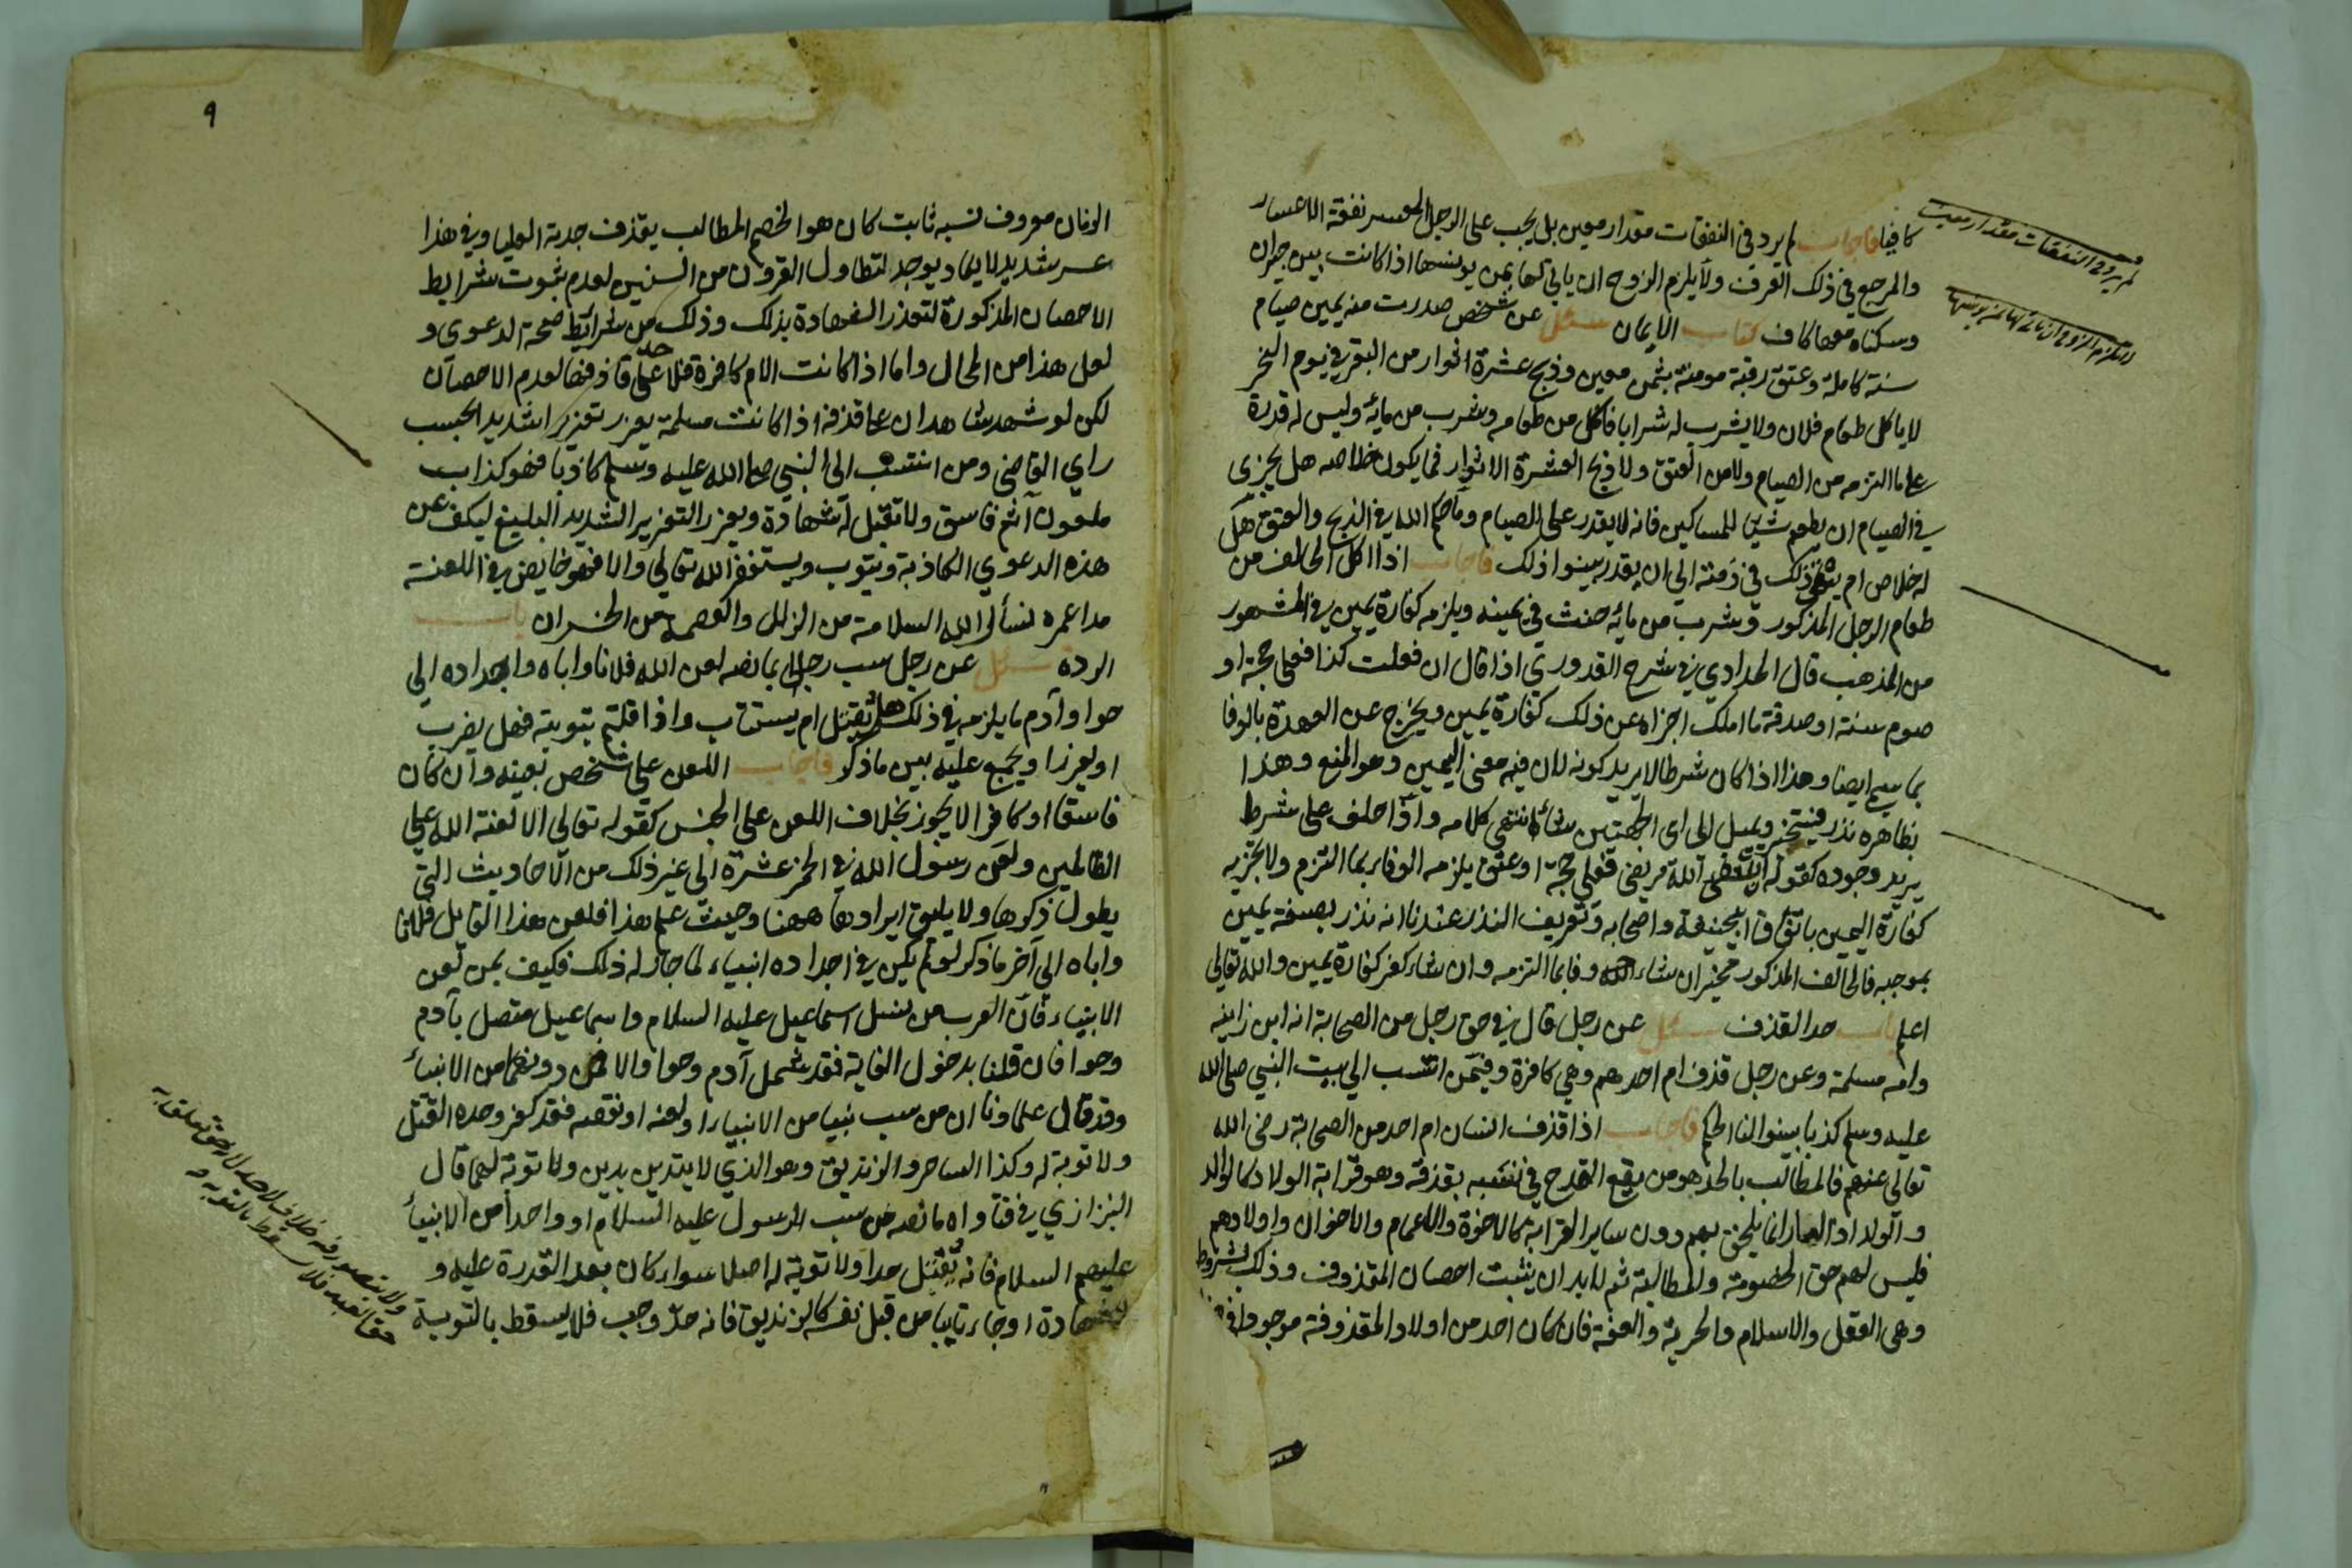 كافيا فاجاب لم يرد في النفقات مقدار معين بل يجب على الرجل المعسر نفقة الاعسار
والمرجع في ذلك العرف ولا يلزم الزوج ان ياتي لها بمن يونسها اذا كانت بين جيران
وسكناه معها كاف كتاب الايمان سئل عن شخص صدرت منه يمين صيام
سنة كاملة وعتق رقبة مومنة بثمن معين وذبح عشرة اثوار من البقر في يوم النحر
لا ياكل طعام فلان ولا يشرب له شرابا فاكل من طعامه وشرب من مايه وليس له قدرة
على ما التزمه من الصيام ولا من العتق ولا ذبح العشرة الاثوار فما يكون خلاصه هل يجزى
في الصيام ان يطعم شيئا للمساكين فانه لا يقدر على الصيام وما حكم الله في الذبح والعتق هل
له خلاص ام يبقى ذلك في ذمته الي ان يقدر بينوا ذلك فاجاب اذا اكل الحالف من
طعام الرجل المذكور وشرب من مايه حنث في يمينه ويلزمه كفارة يمين في المشهور
من المذهب قال الحدادي في شرح القدوري اذا قال ان فعلت كذا فعلي حجة او
صوم سنة او صدقة ما املك اجزاه عن ذلك كفارة يمين ويخرج عن العهدة بالوفا
بما سمي ايضا وهذا اذا كان شرطا لا يريد كونه لان فيه معنى اليمين وهو المنع وهذا
بظاهره نذر فيتخير ويميل الى اى الجهتين شاء انتهى كلامه واذا حلف على شرط
يريد وجوده كقوله ان شفى الله مريضي فعلي حجة او عتق يلزمه الوفاء بما التزم ولا تجزيه
كفارة اليمين باتفاق ابي حنيفة واصحابه وتعريف النذر عندنا انه نذر بصيغة يمين
بموجبه فالحالف المذكور مخير ان شاء وفا بما التزمه وان شاء كفر كفارة يمين والله تعالى
اعلم باب حد القذف سئل عن رجل قال في حق رجل من الصحابة انه ابن زانية
وامه مسلمة وعن رجل قذف ام احدهم وهي كافرة وفيمن انتسب الي بيت النبي صلى الله
عليه وسلم كذبا بينوا لنا الحكم فاجاب اذا قذف انسان ام احد من الصحابة رضي الله
تعالى عنهم فالمطالب بالحد هو من يقع القدح في نسبه بقذفه وهو قرابة الولاد كالوالد
والولد اذ العار انما يلحق بهم دون ساير القرابة كالاخوة والاعمام والاخوان واولادهم
فليس لهم حق الخصومة والمطالبة ثم لا بد ان يثبت احصان المقذوف وذلك بشروط
وهي العقل والاسلام والحرية والعفة فان كان احد من اولاد المقذوفة موجودا
لم يرد في النفقات مقدار معين
لا يلزم الزوج ان ياتي لها بمن يونسها
٩
الزمان معروف نسبه ثابت كان هو الخصم المطالب بقذف جدته العليا وفي هذا
عسر شديد لا يكاد يوجد لتطاول القرون من السنين لعدم ثبوت شرايط
الاحصان المذكورة لتعذر الشهادة بذلك وذلك من شرائط صحة الدعوى و
لعل هذا من المحال واما اذا كانت الام كافرة فلا حد على قاذفها لعدم الاحصان
لكن لو شهد شاهدان على قذفه اذا كانت مسلمة يعزر تعزيرا شديدا بحسب
راي القاضي ومن انتسب الى النبي صلى الله عليه وسلم كاذبا فهو كذاب
ملعون آثم فاسق ولا تقبل له شهادة ويعزر التعزير الشديد البليغ ليكف عن
هذه الدعوي الكاذبة ويتوب ويستغفر الله تعالي والا فهو خايض في اللعنة
مدا عمره نسأل الله السلامة من الزلل والعصمة من الخسران باب
الردة سئل عن رجل سب رجلا بما نصه لعن الله فلانا واباه واجداده الي
حوا وآدم ما يلزمه في ذلك هل يقتل ام يستتاب واذا قلتم بتوبته فهل يضرب
او يعزر او يجمع عليه بين ما ذكر فاجاب اللعن على شخص بعينه وان كان
فاسقا او كافرا لا يجوز بخلاف اللعن على الجنس كقوله تعالى الا لعنة الله علي
الظالمين ولعن رسول الله في الخمر عشرة الى غير ذلك من الاحاديث التي
يطول ذكرها ولا يليق ايرادها ههنا وحيث علم هذا فلعن هذا القايل فلانا
واباه الي آخر ما ذكر لو لم يكن في اجداده انبياء لما جاز له ذلك فكيف بمن لعن
الانبياء فان العرب من نسل اسماعيل عليه السلام واسماعيل متصل بآدم
وحوا فان قلنا بدخول الغاية فقد شمل آدم وحوا والا فمن دونهما من الانبياء
وقد قال علماونا ان من سب نبيا من الانبياء او لعنه او نقصه فقد كفر وحده القتل
ولا توبة له وكذا الساحر والزنديق وهو الذي لا يتدين بدين ولا توبة لهما قال
البزازي في فتاواه ما نصه من سب الرسول عليه السلام او واحدا من الانبياء
عليهم السلام فانه يقتل حدا ولا توبة له اصلا سواء كان بعد القدرة عليه و
الشهادة او جاء تايبا من قبل نفسه كالزنديق فانه حد وجب فلا يسقط بالتوبة
ولا يتصور فيه خلاف لاحد لانه حق تعلق به
حق العبد فلا يسقط بالتوبة